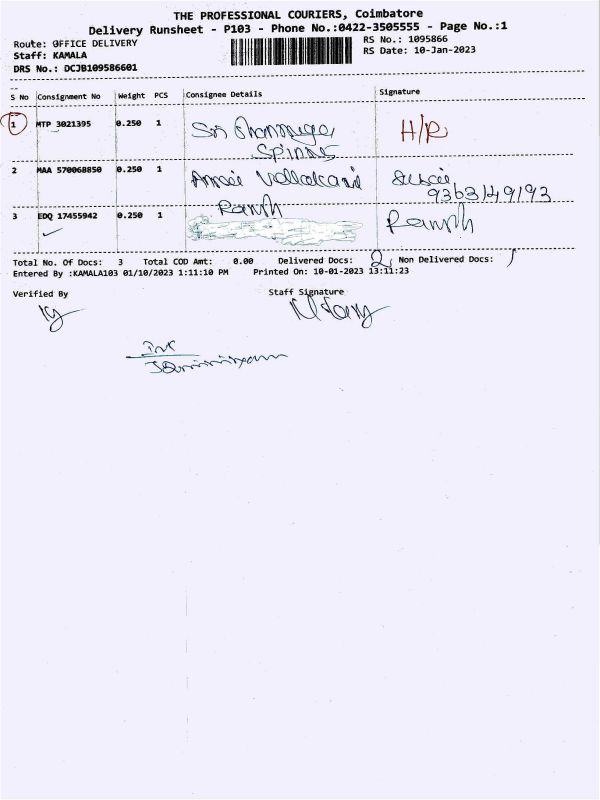 THE PROFESSIONAL COURIERS, Coimbatore
Delivery Runsheet - P103 - Phone No.:0422-3505555 - Page No.:1
Route: OFFICE DELIVERY RS No.: 1095866
Staff: KAMALA RS Date: 10-Jan-2023
DRS No.: DCJB109586601
S No Consignment No Weight PCS Consignee Details Signature
1 MTP 3021395 0.250 1 Sri Shanmuga H/R
Spinns
2 MAA 570068850 0.250 1 9363149193
3 EDQ 17455942 0.250 1
Total No. Of Docs: 3 Total COD Amt: 0.00 Delivered Docs: 2 Non Delivered Docs: 1
Entered By :KAMALA103 01/10/2023 1:11:10 PM Printed On: 10-01-2023 13:11:23
Verified By Staff Signature